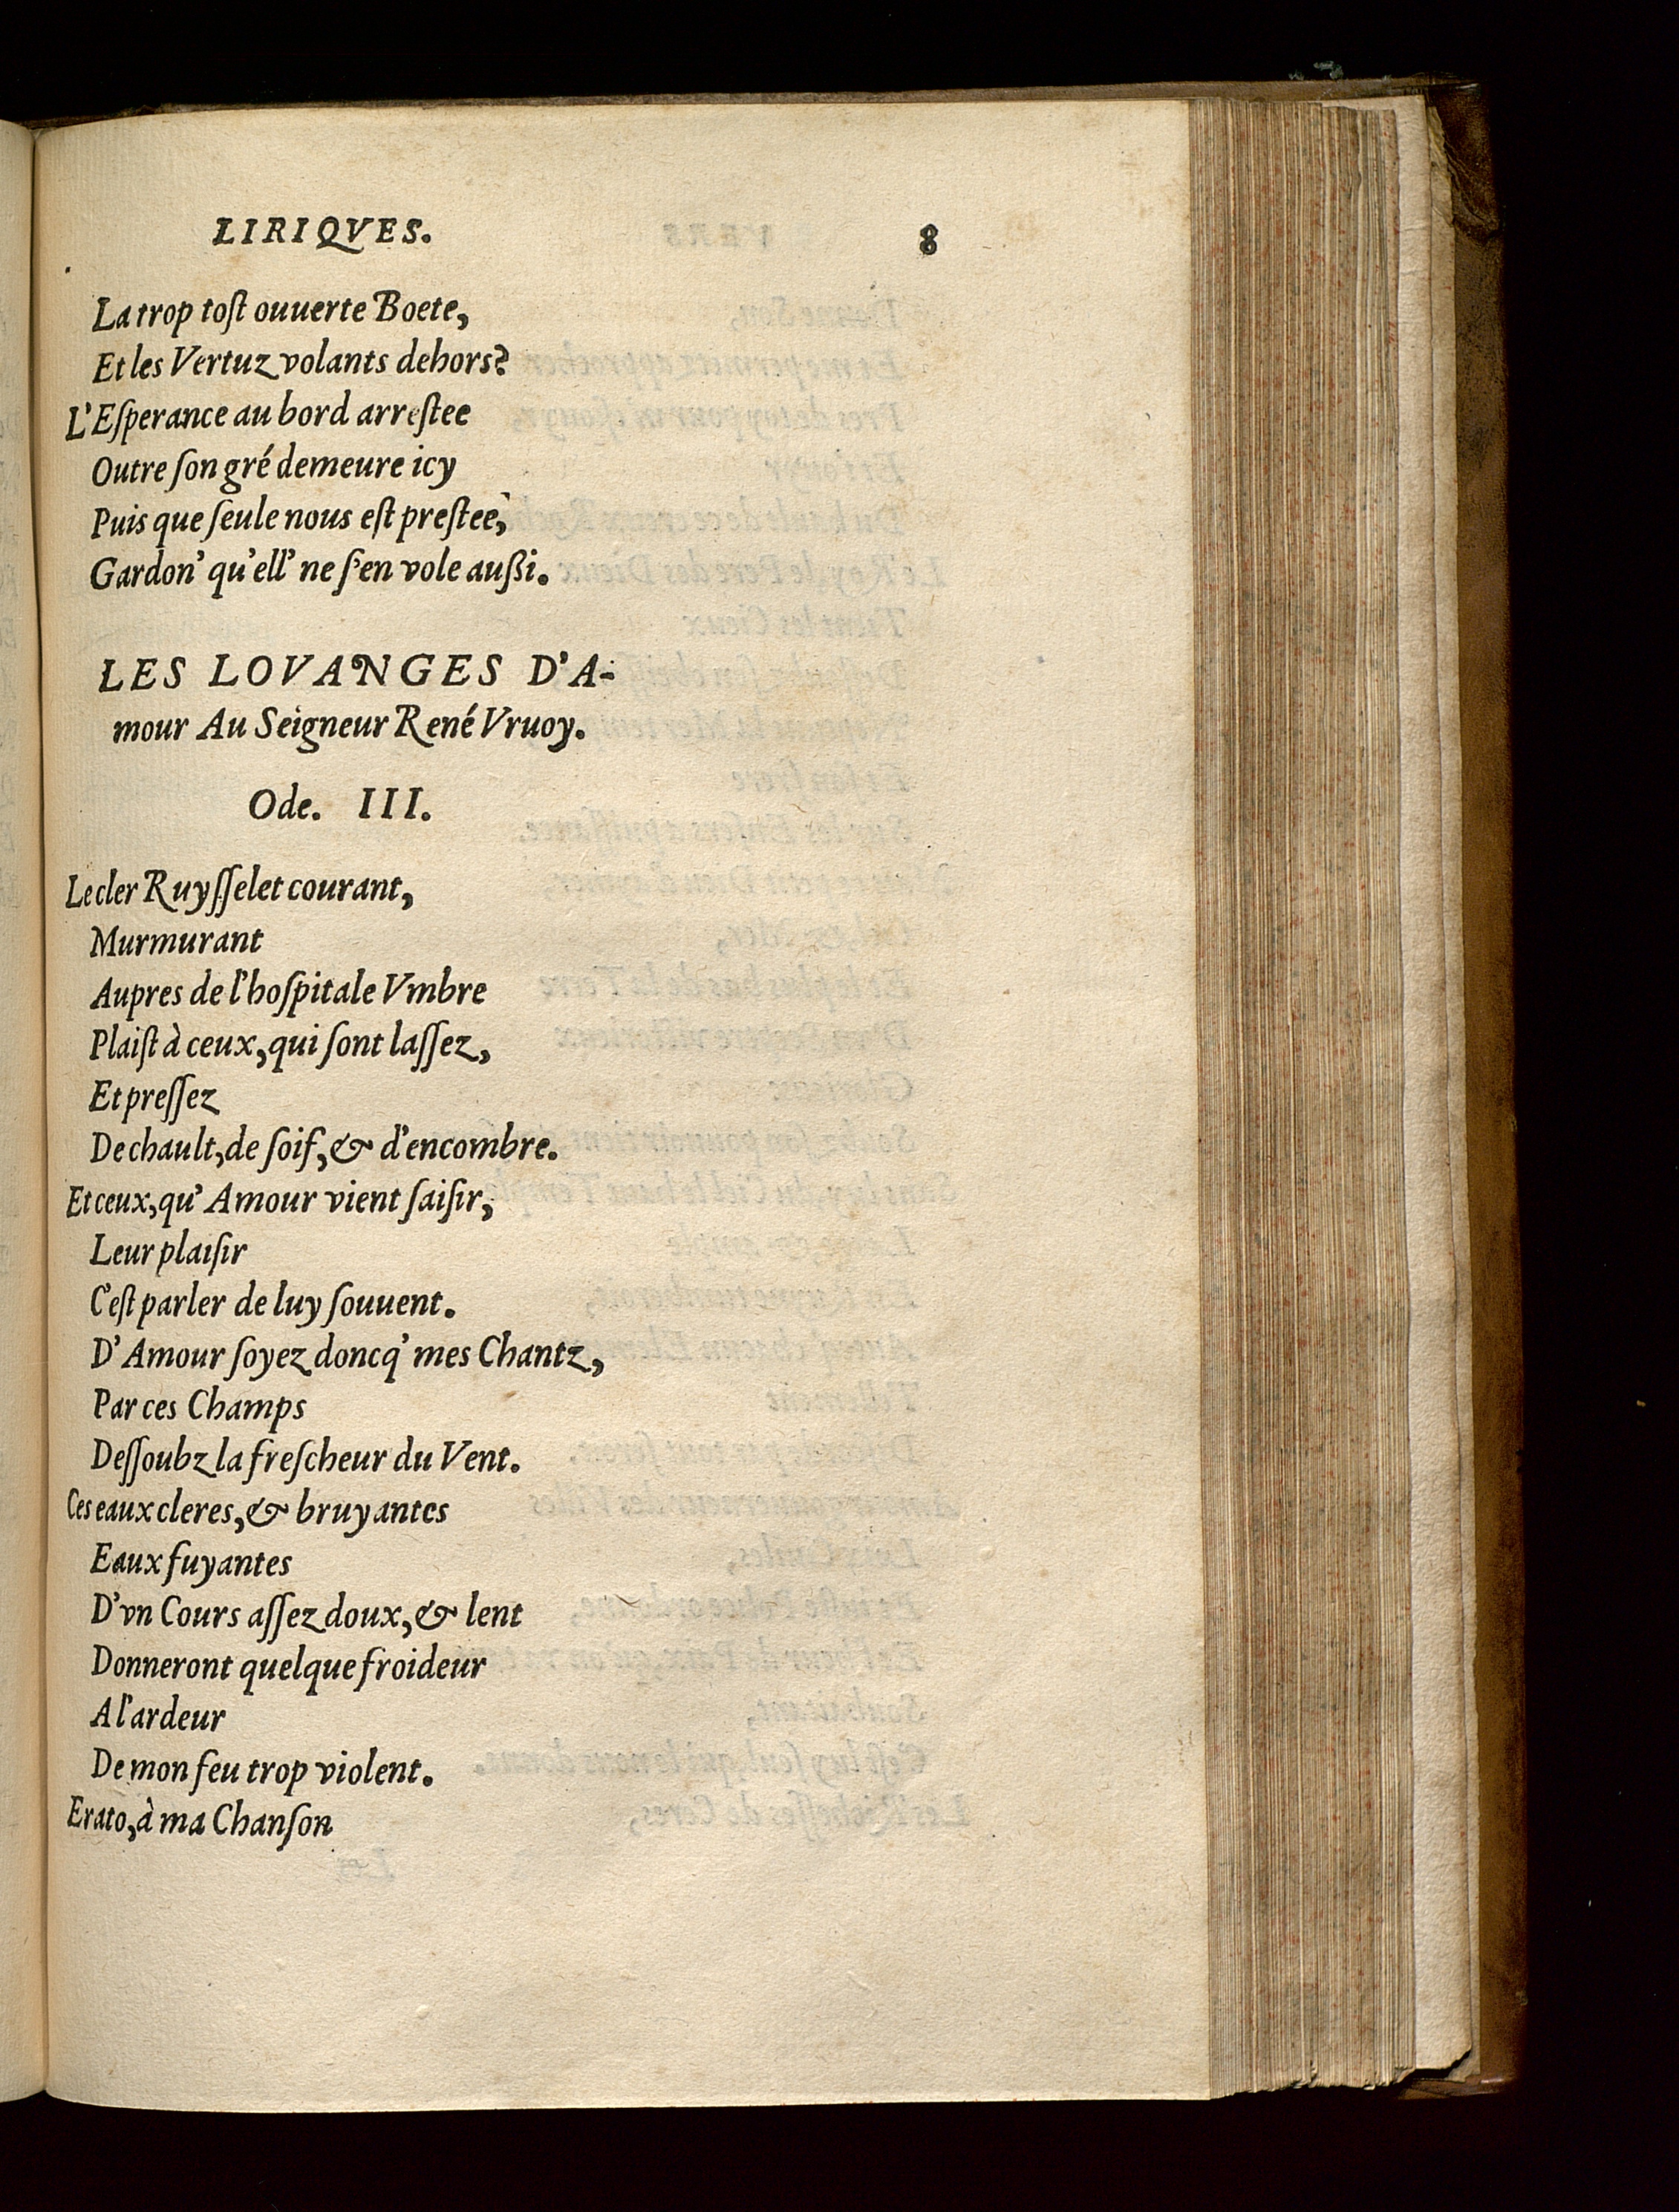 LIRIQVES. 8
La trop toſt ouuerte Boete,
Et les Vertuz volants dehors?
L'Eſperance au bord arreſtee
Outre ſon gré demeure icy
Puis que ſeule nous eſt preſtee,
Gardon' qu'ell' ne ſ'en vole außi.
LES LOVANGES D'A-
mour Au Seigneur René Vruoy.
Ode. III.
Le cler Ruyſſelet courant,
Murmurant
Aupres de l'hoſpitale Vmbre
Plaiſt à ceux, qui ſont laſſez,
Et preſſez
De chault, de ſoif, & d'encombre.
Et ceux, qu'Amour vient ſaiſir,
Leur plaiſir
C'eſt parler de luy ſouuent.
D'Amour ſoyez doncq' mes Chantz,
Par ces Champs
Deſſoubz la freſcheur du Vent.
Ces eaux cleres, & bruyantes
Eaux fuyantes
D'vn Cours aſſez doux, & lent
Donneront quelque froideur
A l'ardeur
De mon feu trop violent.
Erato, à ma Chanſon